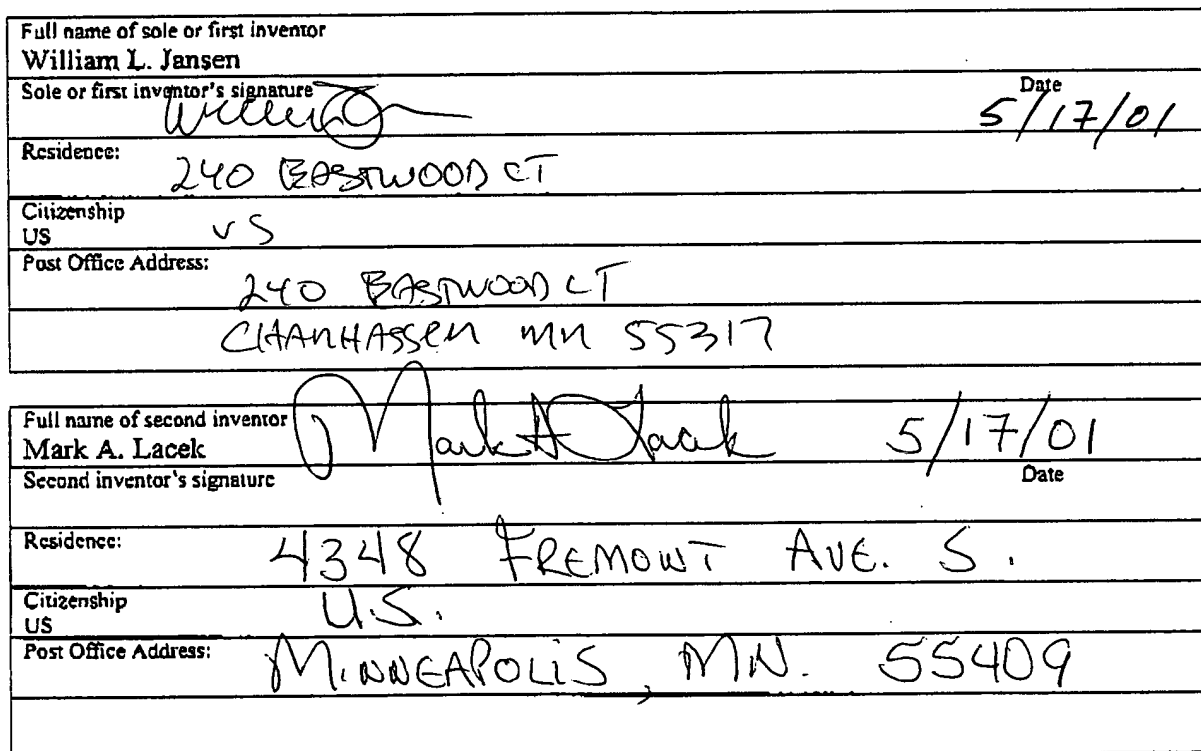 Full name of sole or first inventor
William L. Jansen
Sole or first inventor's signature Date
5/17/01
Residence:
240 EASTWOOD CT
Citizenship
US US
Post Office Address:
240 EASTWOOD CT
CHANHASSEN MN 55317
Full name of second inventor
Mark A. Lacek Mark A Lacek 5/17/01
Second inventor's signature Date
Residence: 4348 FREMONT AVE. S.
Citizenship U.S.
US
Post Office Address: MINNEAPOLIS, MN. 55409